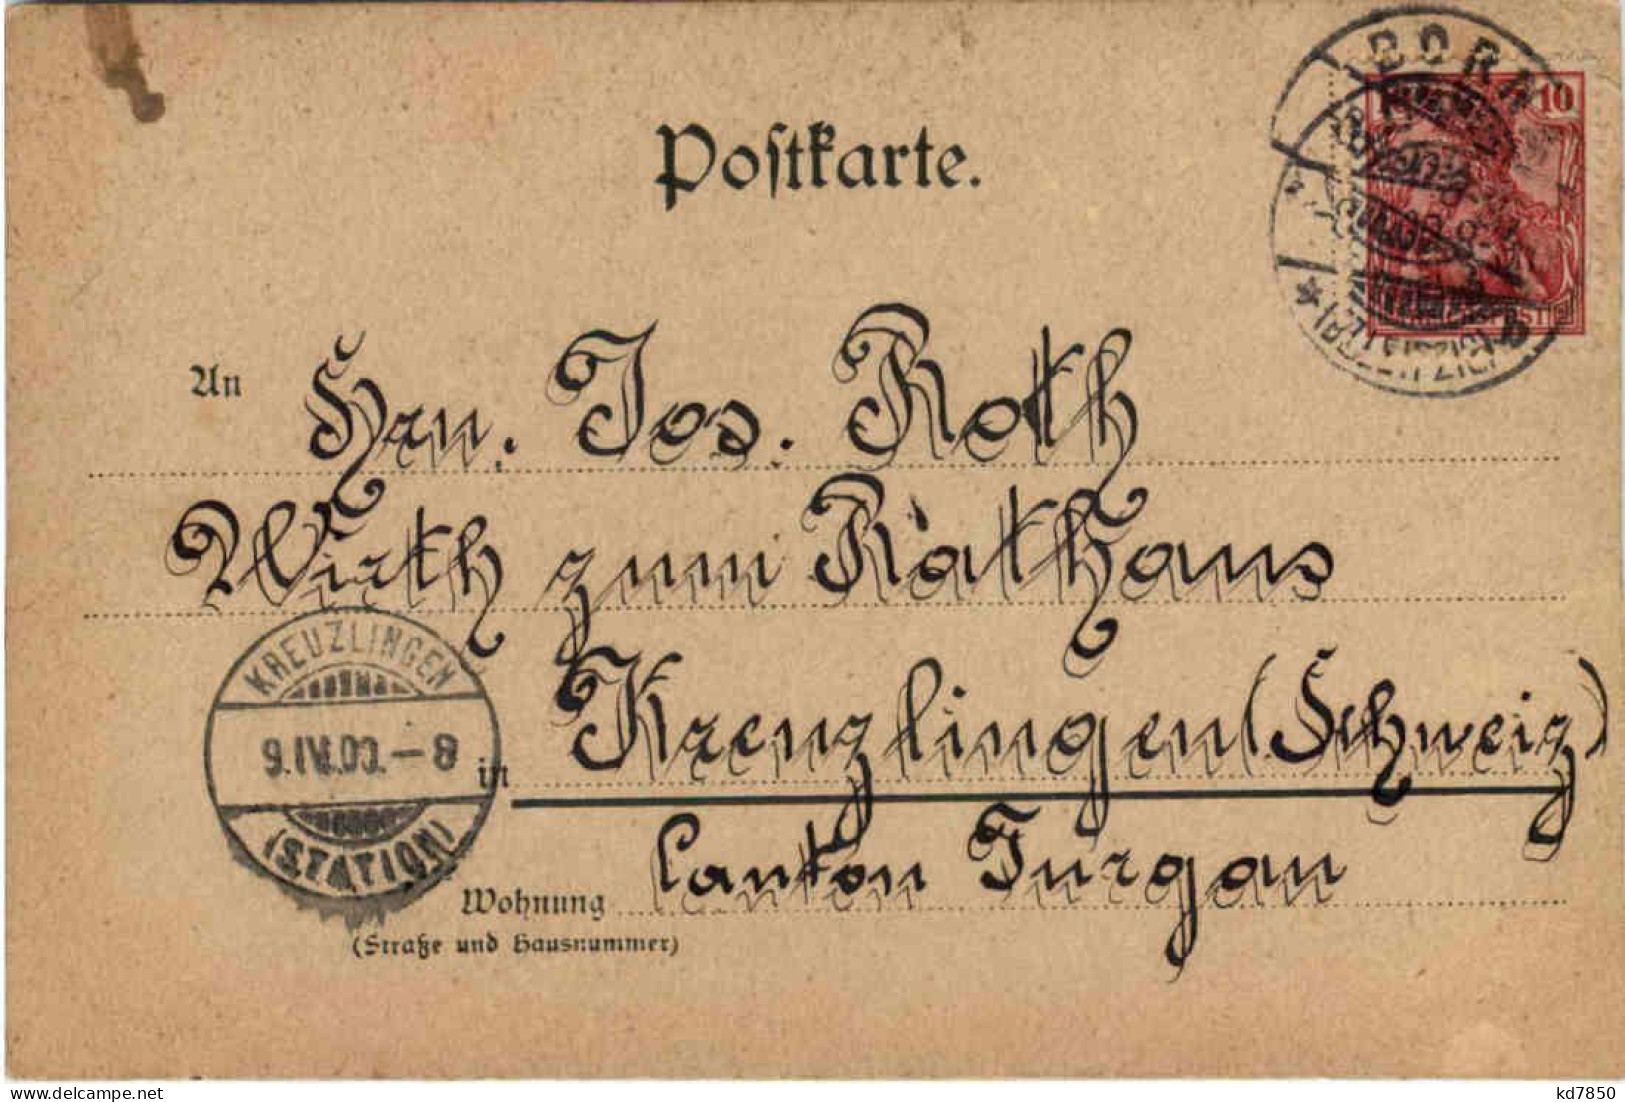 BORN
10
Postkarte.
An Hrn. Jos. Roth
Wirth zum Rathaus
KREUZLINGEN
9.IV.00.-8
(STATION)
in Kreuzlingen (Schweiz)
Canton Turgau
Wohnung
(Straße und Hausnummer)
kd7850